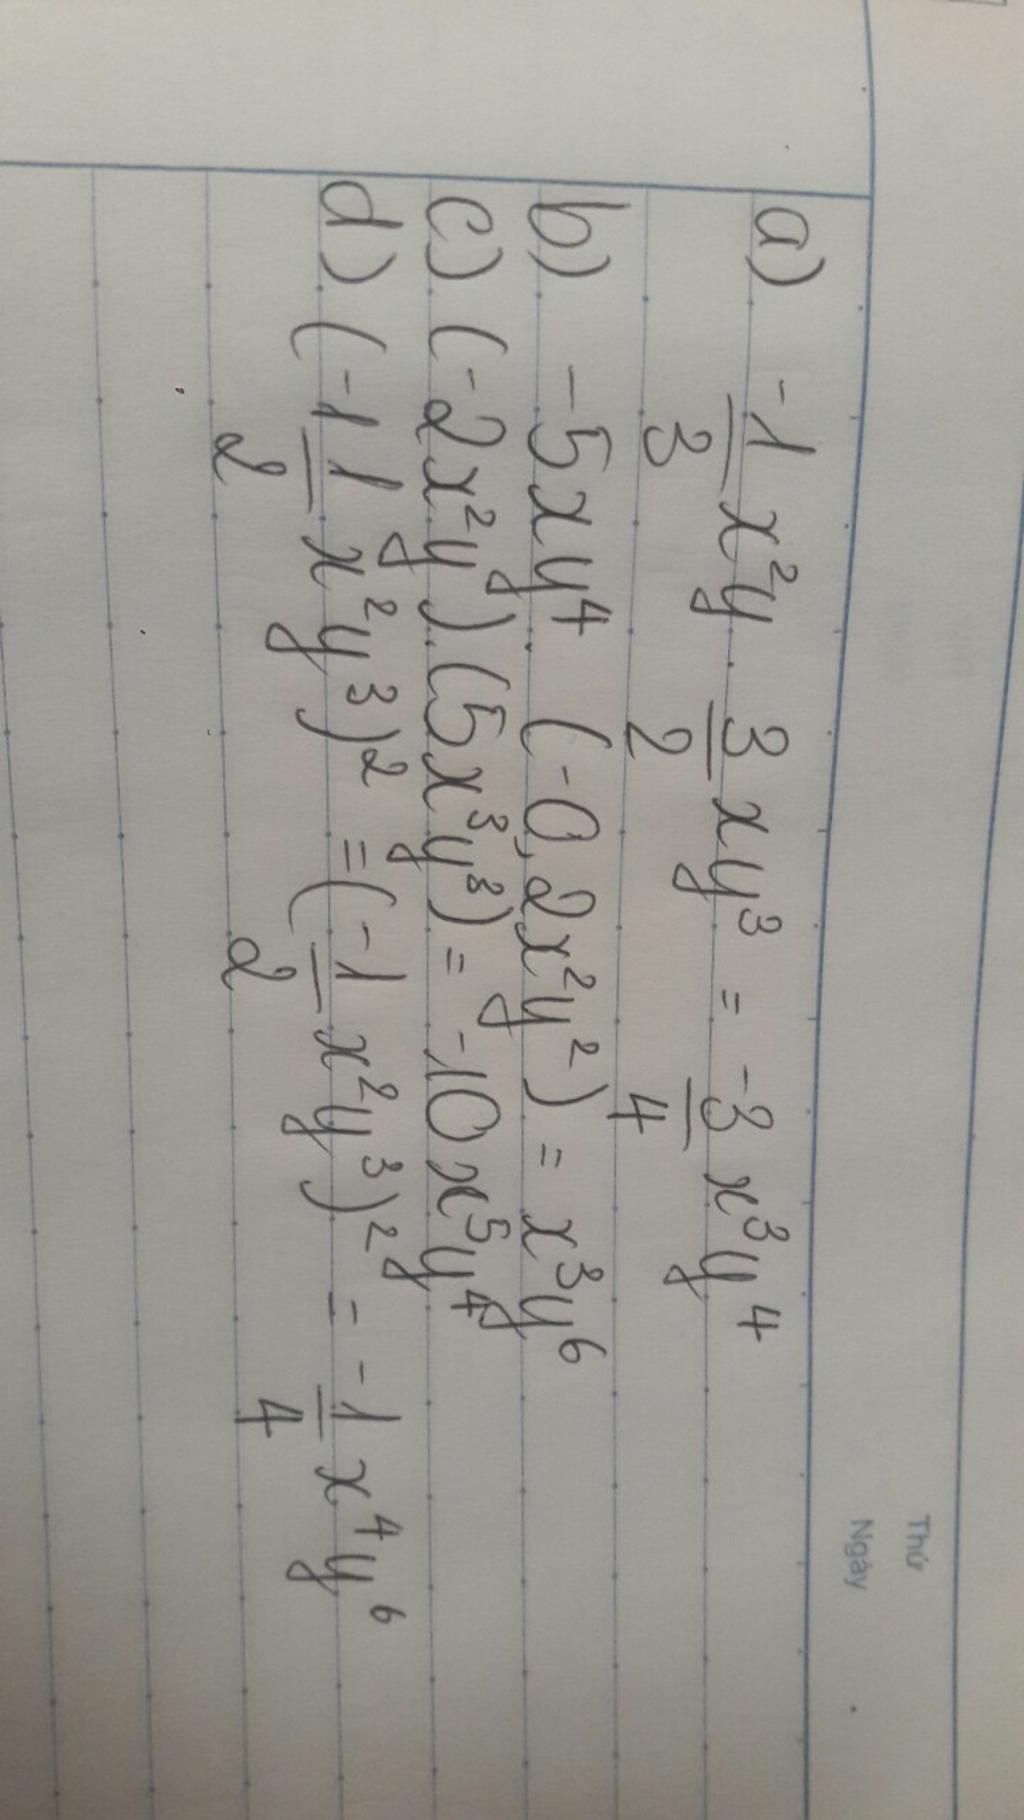 Thứ
Ngày
a) -1/3 x²y . 3/2 xy³ = -3/4 x³y⁴
b) -5xy⁴ . (-0,2x²y²) = x³y⁶
c) (-2x²y) . (5x³y³) = -10x⁵y⁴
d) (-1 1/2 x²y³)² = (-1/2 x²y³)² = -1/4 x⁴y⁶